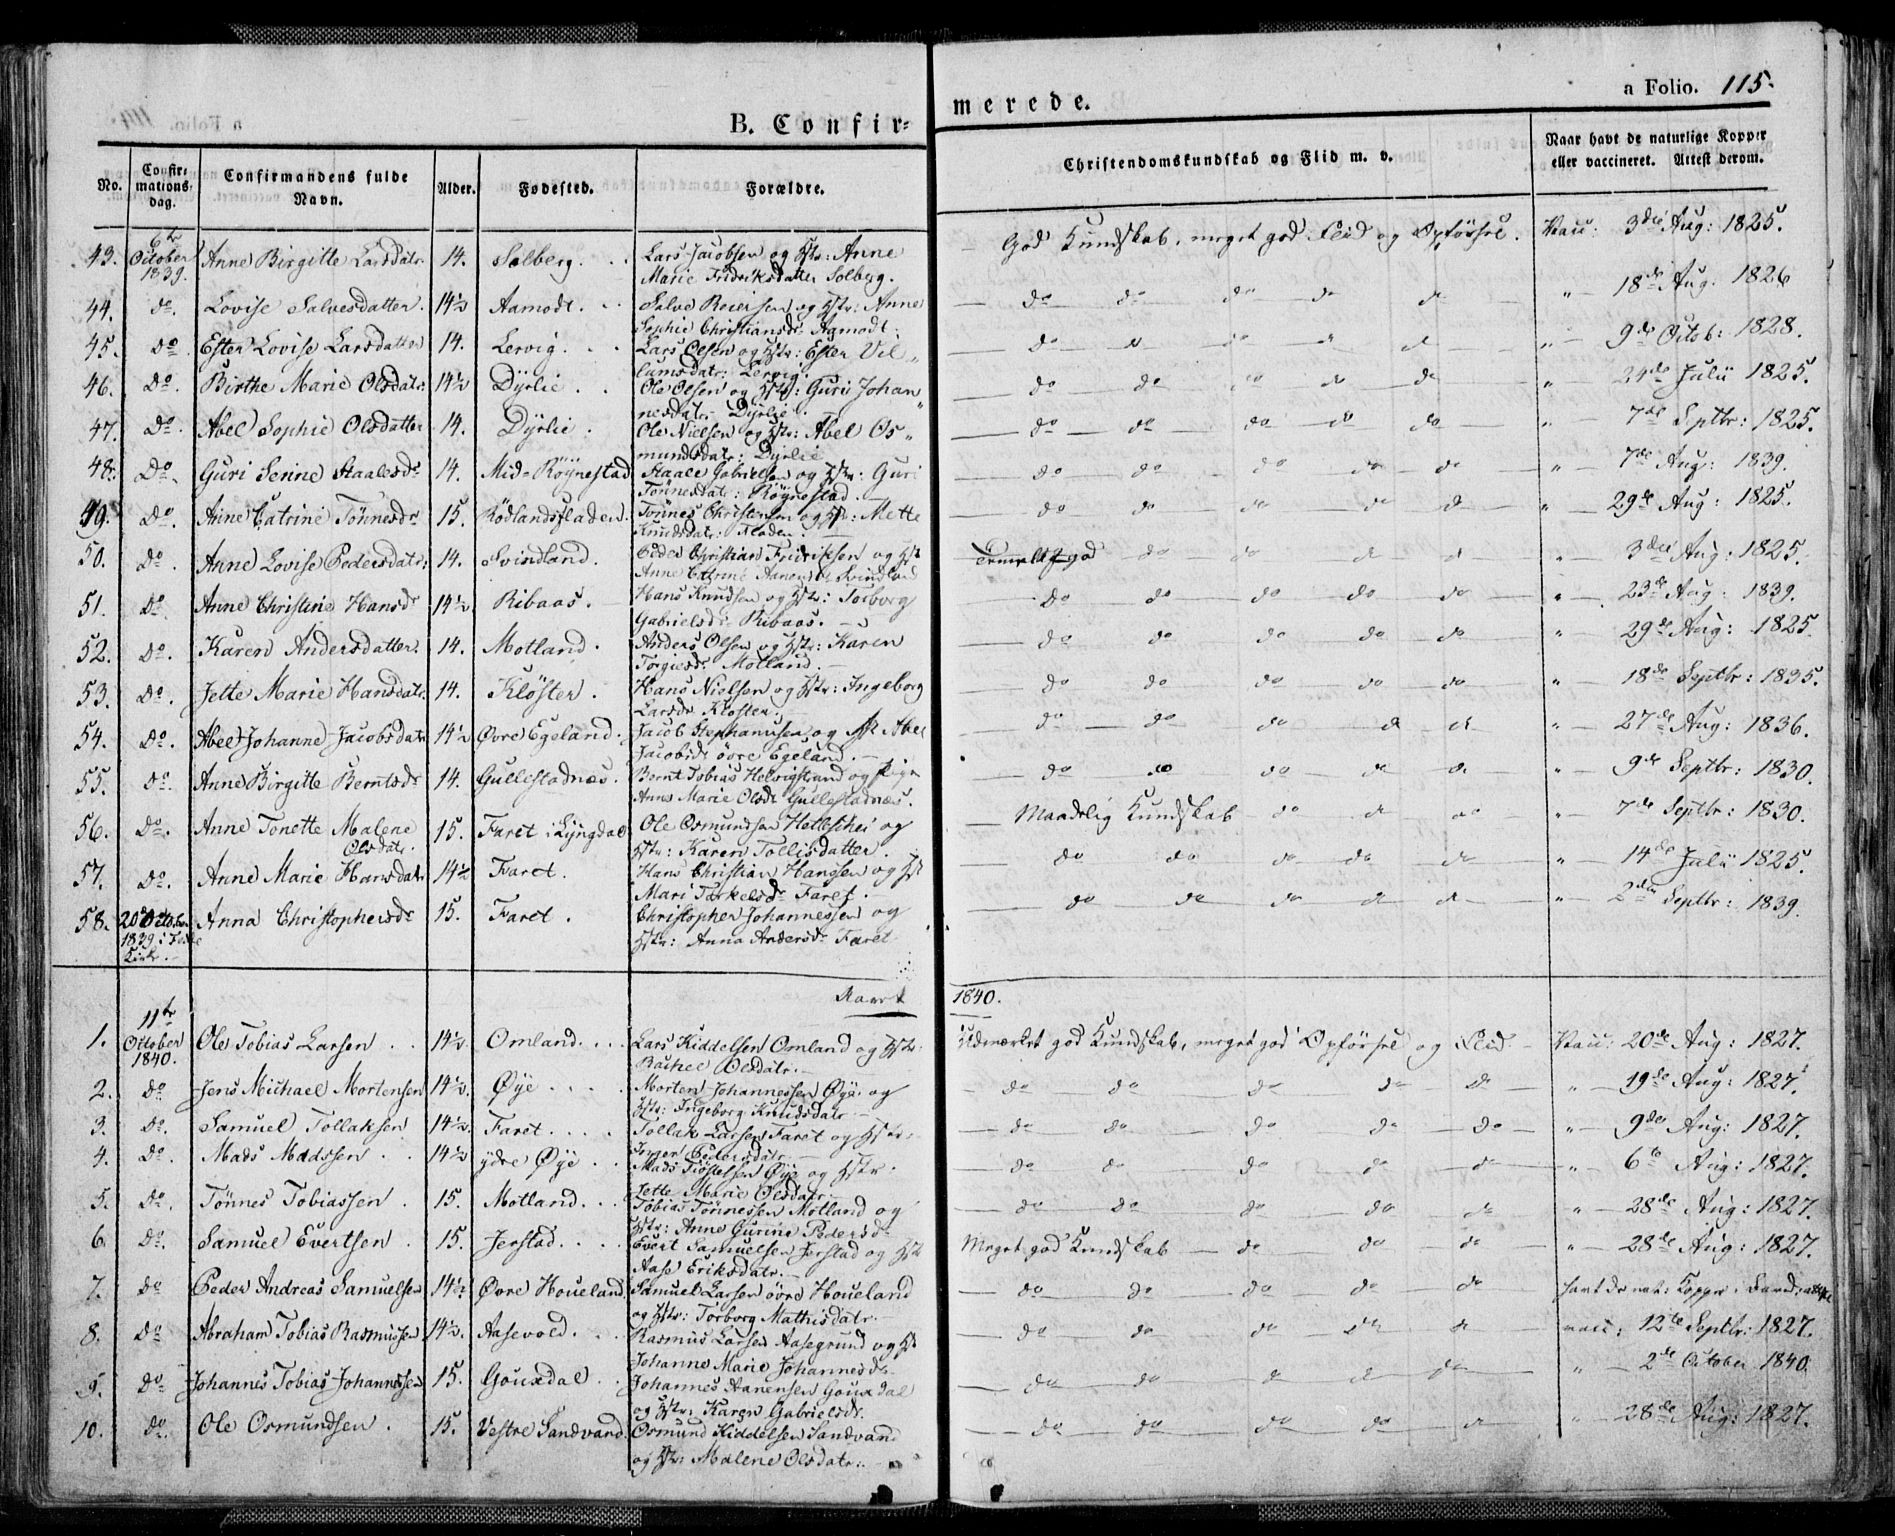 B. Confir-
merede.
a Folio. 115.
No. Confirmations-dag. Confirmandens fulde Navn. Alder. Fødested. Forældre. Christendomskundskab og Flid m. v. Naar havt de naturlige Kopper eller vaccineret. Attest derom.
43. 6te October 1839. Anne Birgitte Larsdatr. 14. Solberg. Lars Jacobsen og Hstr: Anne Marie Fredriksdatter Solberg. God Kundskab, meget god Flid og Opførsel. Vacc: 3die Aug: 1825.
44. do. Lovise Salvesdatter. 14½ Aamodt. Salve Reiersen og Hstr: Anne Sophie Christiansdr Aamodt. do do do do do " 18de Aug: 1826
45. Do. Ester Lovise Larsdatter 14. Lervig. Lars Olsen og Hstr: Ester Vil„lumsdatr: Lervig. do do do do do " 9de Octob: 1828.
46. Do. Birthe Marie Olsdatr: 14½ Dyrlie. Ole Olsen og Hstr: Guri Johan„nesdatr Dyrlie. do do do do do " 24de Julii 1825.
47. Do. Abel Sophie Olsdatter 14. Dyrlie. Ole Nielsen og Hstr: Abel Os„mundsdatr: Dyrlie do do do do do " 7de Septbr: 1825.
48. Do. Guri Senne Staalesdr 14. Mid-Röynestad Staale Gabrielsen og Hstr: Guri Tönnesdatr: Röynestad. do do do do do " 7de Aug: 1839.
49. Do. Anne Catrine Tönnesdr 15. Rödlandsfladen. Tönnes Christensen og Hstr: Mette Knudsdatr: Fladen. do do do do do " 29de Aug: 1825.
50. Do. Anne Lovise Pedersdatr: 14. Svindland. Peder Christian Fridriksen og Hst Anne Catrine Aanensdr Svindland god do do do do " 3die Aug: 1825.
51. Do. Anne Christine Hansdr 14½ Ribaas. Hans Knudsen og Hstr: Torborg Gabrielsdr Ribaas. Do do do do do " 23de Aug: 1839.
52. Do. Karen Andersdatter. 14. Motland. Anders Olsen og Hstr: Karen Torgiesdr Motland. do do do do do " 29de Aug: 1825.
53. Do. Jette Marie Hansdatr. 14. Klöster. Hans Nielsen og Hstr: Ingeborg Larsdr Kloster. do do do do do " 18de Septbr: 1835.
54. Do. Abel Johanne Jacobsdatr 14½ Øvre Egeland. Jacob Stephanusen og Abel Jacobsdr övre Egeland. do do do do do " 27de Aug: 1836.
55. Do. Anne Birgitte Berntsdr 14. Gullestadnæs. Bernt Tobias Helvigstrand og Pigen Anne Marie Olsdr Gullestadnæs. do do do do do " 9de Septbr: 1830.
56. Do. Anne Tonette Malene Olsdatr. 15. Faret i Lyngdal Ole Osmundsen Helleshei og Hstr: Karen Tollisdatter. Maadelig Kundskab do do do " 7de Septbr: 1830.
57. Do. Anne Marie Hansdatr 14½ Faret. Hans Christian Hanssen og Hst Mari Torkelsdr Faret. do do do do do " 14de Julii 1825.
58. 20de October 1839 i Kirke. Anna Christophersdr 15. Faret. Christopher Johannessen og Hstr: Anna Andersdr Faret. do do do do do " 2den Septbr: 1839.
Aaret 1840.
1. 11te October 1840. Ole Tobias Larsen 14½ Omland. Lars Kiddelsen Omland og Hstr: Rachel Olsdatr. Udmærket god Kundskab, meget god Opførsel og Flid Vacc: 20de Aug: 1827.
2. Do. Jens Michael Mortensen 14½. Øye. Morten Johannessen Øye og Hstr: Ingeborg Knudsdatr do do do do do " 19de Aug: 1827.
3. Do. Samuel Tollaksen 14½. Faret. Tollak Larsen Faret og Hstr: Inger Pedersdatr. do do do do do " 9de Aug: 1827.
4. Do. Mads Madssen 14½ ydre Øye Mads Tjöstelsen Øye og Hstr: Jette Marie Olsdatr do do do do do " 6te Aug: 1827.
5. Do. Tönnes Tobiassen. 15. Motland. Tobias Tönnessen Motland og Hstr: Anne Gurine Pedersdr do do do do do " 28de Aug: 1827.
6. Do. Samuel Evertsen. 15. Jerstad. Evert Samuelsen Jerstad og Hst Aase Eriksdatr. Meget god Kundskab do do do " 28de Aug: 1827.
7. Do Peder Andreas Samuelsen 14½ Øvre Houeland Samuel Larsen övre Houeland og Hstr: Torborg Mathisdatr. do do do do do havt de nat: Kopper
8. Do Abraham Tobias Rasmussen 14½. Aasevold. Rasmus Larsen Aasegrund og Hst Johanne Marie Johannesdr do do do do do vacc: 12te Septbr: 1827.
9. Do Johannes Tobias Johannessen 15. Gouxdal Johannes Aanensen Gouxdal og Hstr: Karen Gabrielsdr. do do do do do " 2de October 1840
10. do. Ole Osmundsen. 15. Vestre Sandvand. Osmund Kiddelsen Sandvand og Hstr: Malene Olsdatr: do do do do do " 28de Aug: 1827.